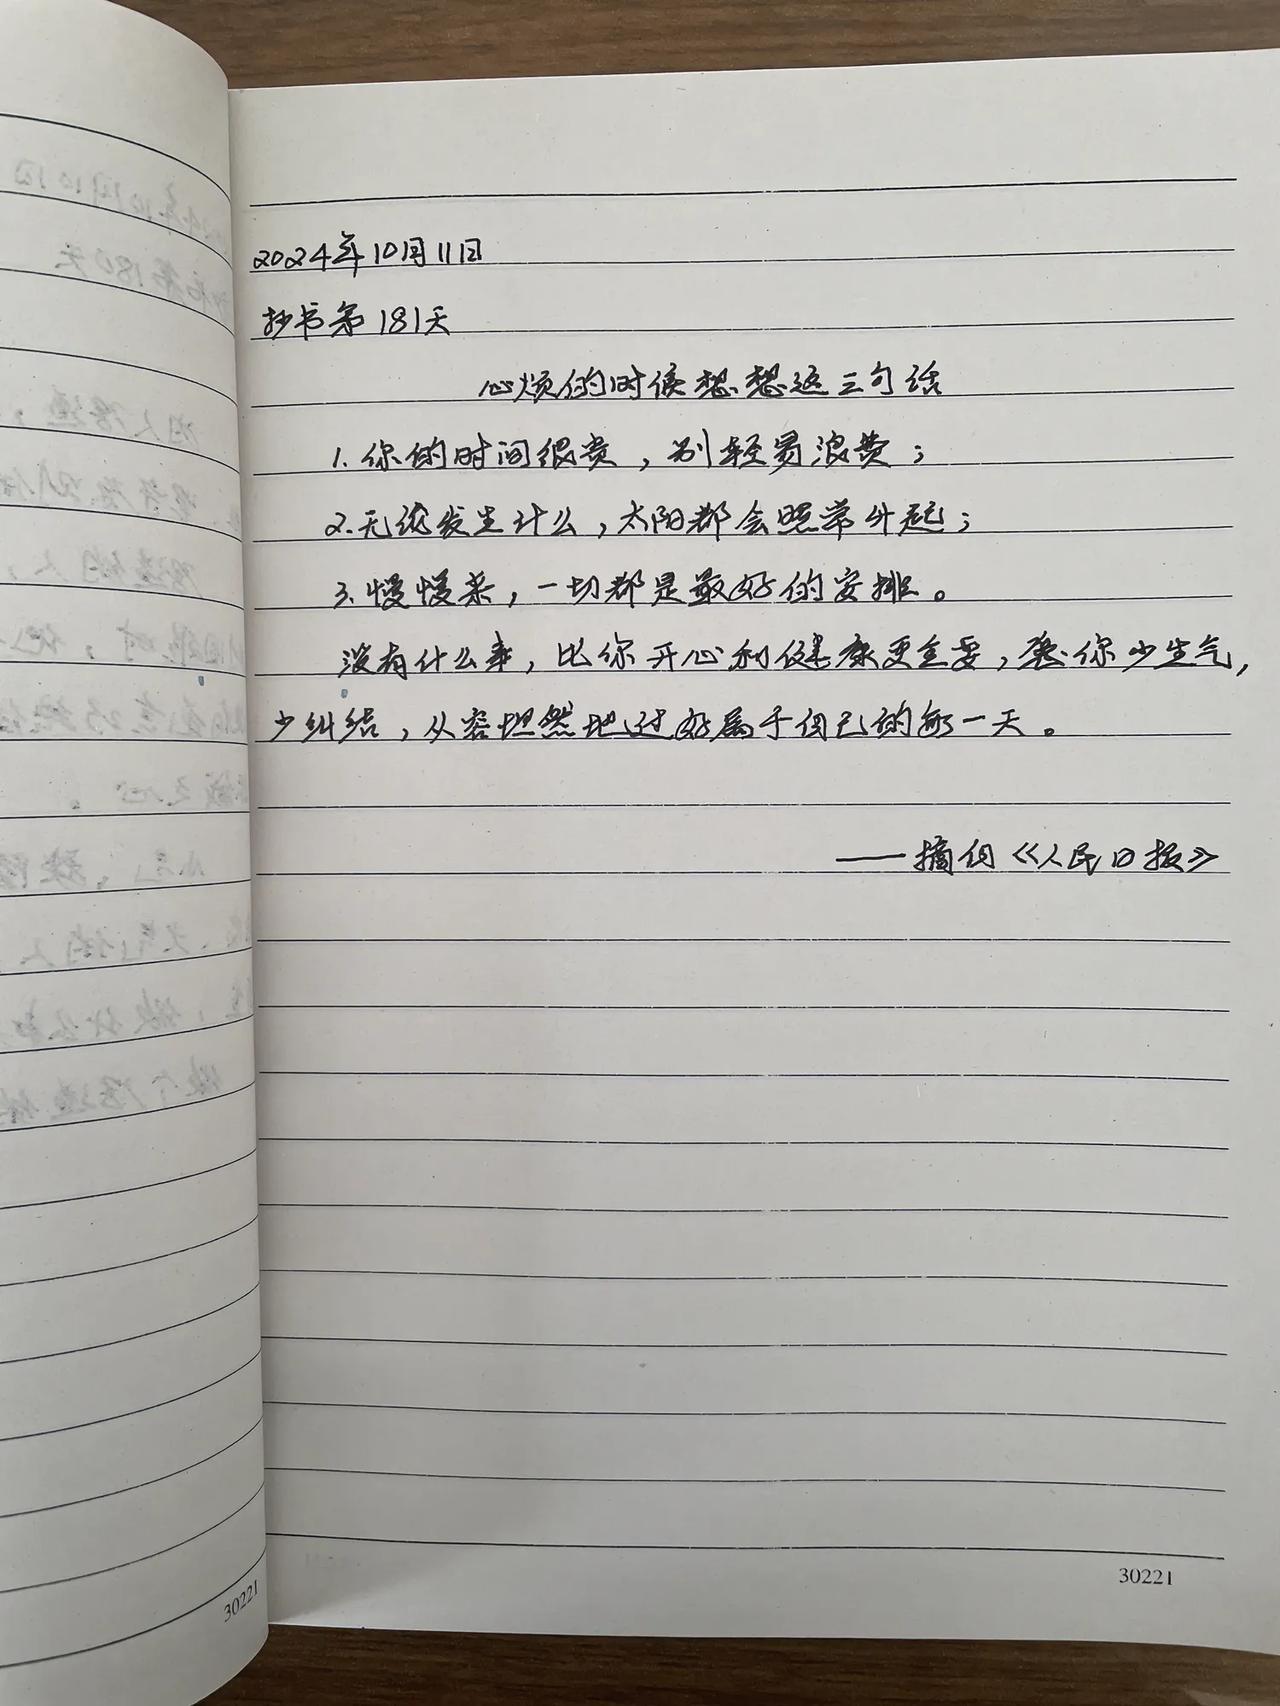 2024年10月11日
抄书第181天
心烦的时候想想这三句话
1.你的时间很贵，别轻易浪费；
2.无论发生什么，太阳都会照常升起；
3.慢慢来，一切都是最好的安排。
没有什么事，比你开心和健康更重要，愿你少生气，
少纠结，从容坦然地过好属于自己的每一天。
——摘自《人民日报》
30221
30221